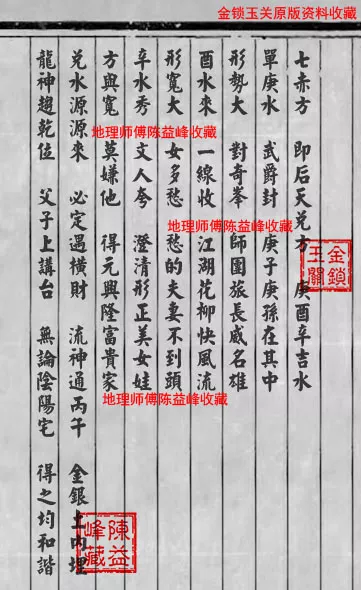 金锁玉关原版资料收藏
七赤方 即后天兑方 庚酉辛吉水
單庚水 武爵封 庚子庚孫在其中
形勢大 對奇峯 師團旅長威名雄
酉水來 一線收 江湖花柳快風流
形寬大 女多愁 愁的夫妻不到頭
辛水秀 文人夸 澄清形正美女娃
方與寬 莫嫌他 得元興隆富貴家
兑水源源來 必定遇橫財 流神通丙午 金銀土内埋
龍神趨乾位 父子上講台 無論陰陽宅 得之均和諧
地理师傅陈益峰收藏
地理师傅陈益峰收藏
地理师傅陈益峰收藏
金鎖玉關
陳益峰藏